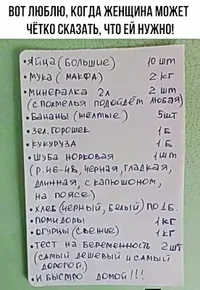 ВОТ ЛЮБЛЮ, КОГДА ЖЕНЩИНА МОЖЕТ
ЧЁТКО СКАЗАТЬ, ЧТО ЕЙ НУЖНО!
• Яйца (большие) 10 шт
• Мука (МАКФА) 2 кг
• Минералка 2л 2 шт
(с похмелья подойдёт любая)
• Бананы (жёлтые) 5шт
• Зел. горошек 1 Б
• Кукуруза 1 Б
• Шуба норковая 1шт
(р. 46-48, чёрная, гладкая,
длинная, с капюшоном,
на поясе)
• Хлеб (чёрный, белый) по 1Б.
• Помидоры 1 кг
• Огурцы (свежие) 1 кг
• Тест на беременность 2 шт
(самый дешёвый и самый
дорогой)
• И быстро домой!!!